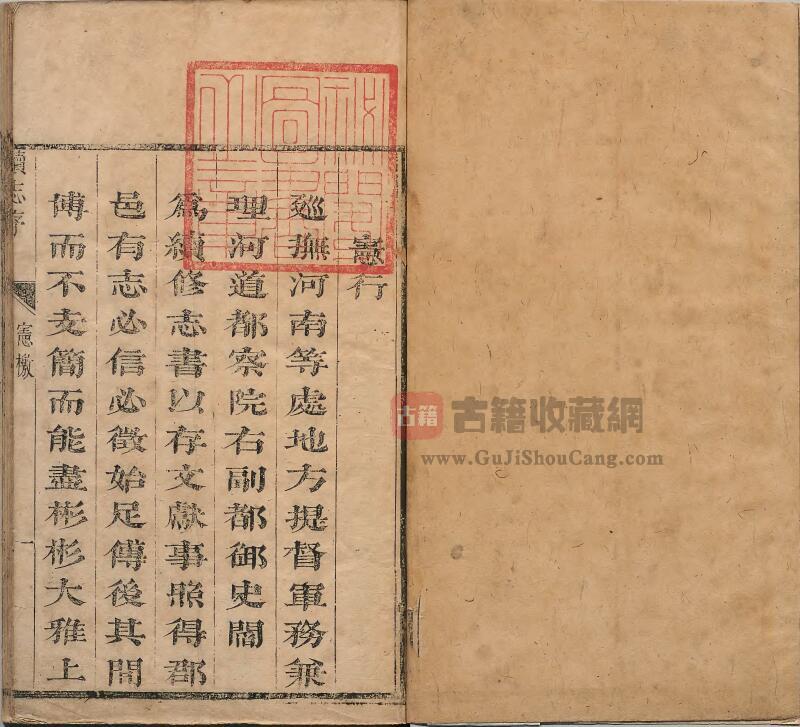 憲行
廵撫河南等處地方提督軍務兼
理河道都察院右副都御史閻
爲續修志書以存文獻事照得郡
邑有志必信必徵始足傳後其間
博而不支簡而能盡彬彬大雅上
續志序
憲檄
一
古籍
古籍收藏網
www.GuJiShouCang.com